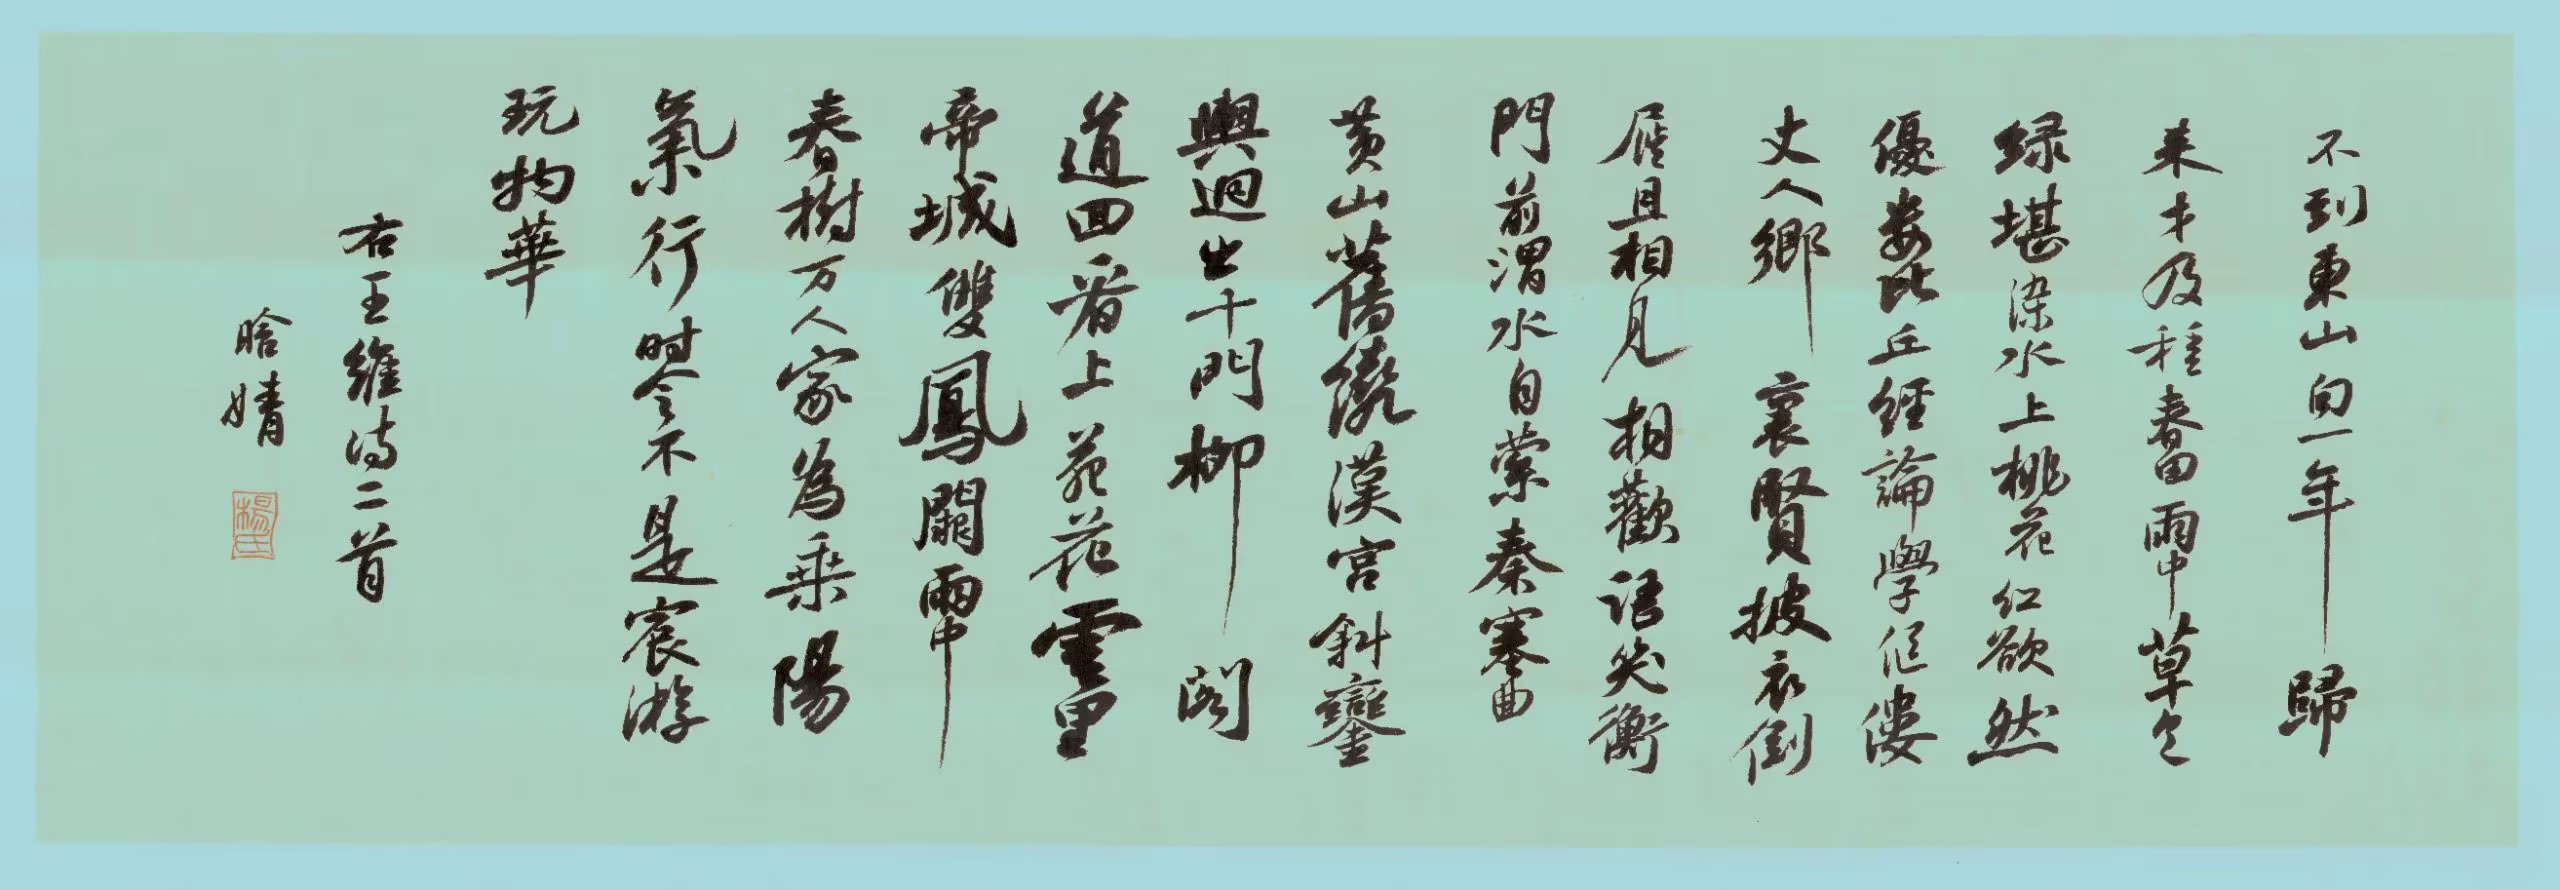 不到東山向一年歸
来才及種春田雨中草色
緑堪染水上桃花红欲然
優婁比丘經論學伛僂
丈人鄉裏賢披衣倒
屣且相見相歡语笑衡
門前渭水自萦秦塞曲
黄山舊繞漢宫斜鑾
輿迥出千門柳閣
道回看上苑花雲里
帝城雙鳳闕雨中
春樹万人家為乘陽
氣行时令不是宸游
玩物華
右王維诗二首
晗婧
楊氏